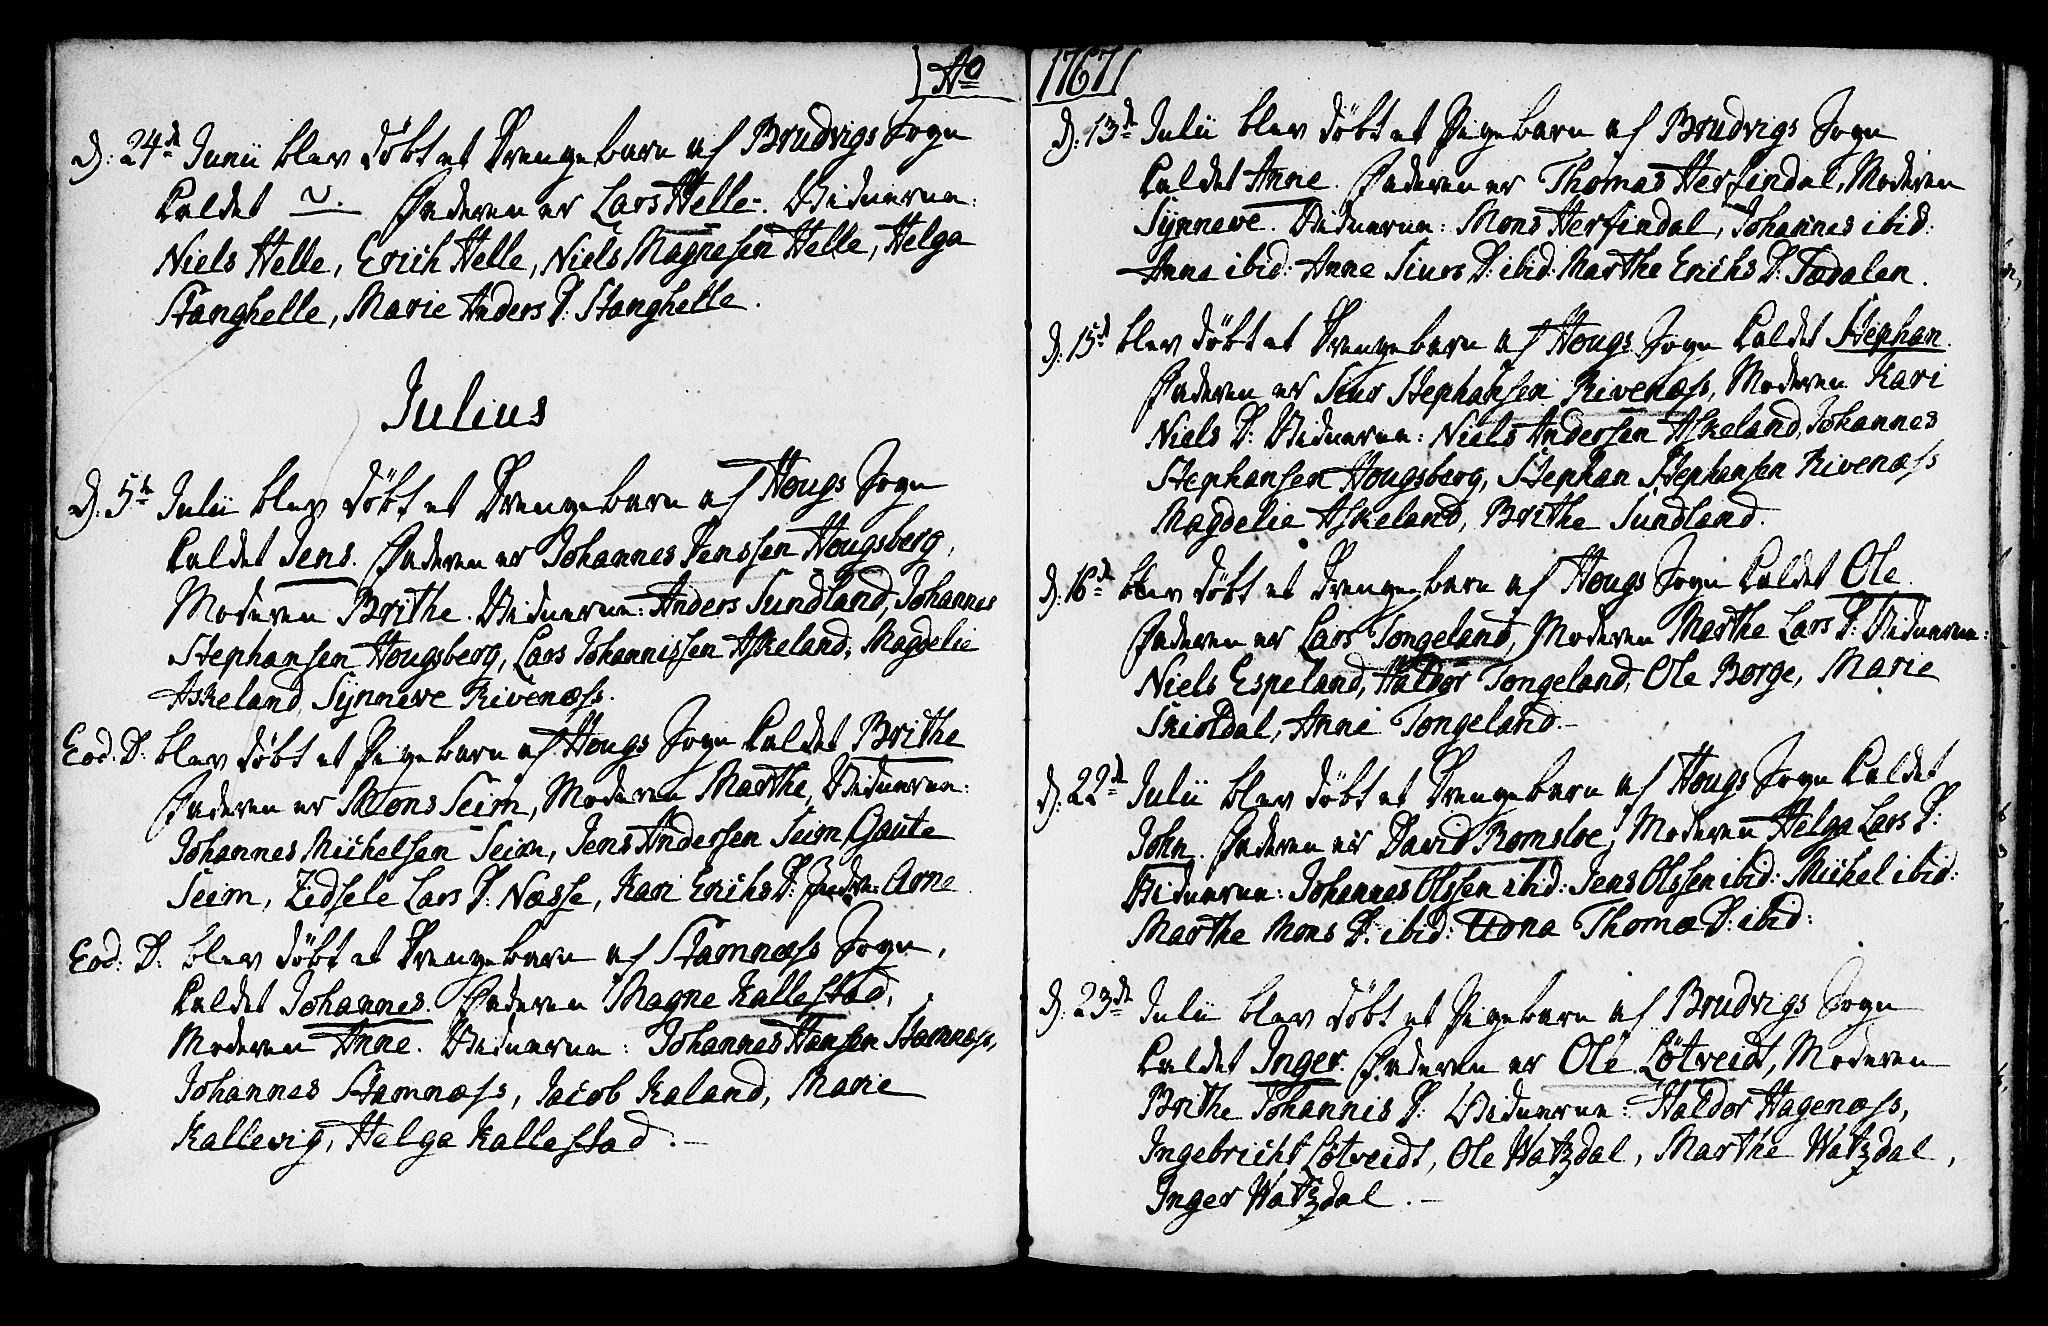 Ao 1767
D: 24de Junii blev døbt et Drengebarn af Brudvigs Sogn
kaldet N. Faderen er Lars Helle. Vidnerne:
Niels Helle, Erich Helle, Niels Magnesen Helle, Helga
Stanghelle, Marie Anders D: Stanghelle.
Julius
D: 5te Julii blev døbt et Drengebarn af Hougs Sogn
kaldet Jens. Faderen er Johannes Jenssen Hougsberg,
Moderen Brithe. Vidnerne: Anders Sundland, Johannes
Stephansen Hougsberg, Lars Johannissen Askeland, Magdelie
Askeland, Synneve Rivenæss.
Eod. D: blev døbt et Pigebarn af Hougs Sogn kaldet Brithe
Faderen er Mons Seim, Moderen Marthe, Vidnerne:
Johannes Michelsen Seim, Jens Andersen Seim, Gaute
Seim, Zidsele Lars D: Næsse, Kari Erichs D: Indre Arne.
Eod: D: blev døbt et Drengebarn af Stamnæss Sogn,
kaldet Johannes. Faderen Magne Kallestad,
Moderen Anne. Vidnerne: Johannes Hansen Stamnæss,
Johannes Stamnæss, Jacob Kaland, Marie
Kallevig, Helga Kallestad.
D: 13de Julii blev døbt et Pigebarn af Brudvigs Sogn
kaldet Anne. Faderen er Thomas Herfindal, Moderen
Synneve. Vidnerne: Mons Herfindal, Johannes ibid:
Anna ibid: Anne Siurs D: ibid: Marthe Erichs D: Tødalen.
D: 15de blev døbt et Drengebarn af Hougs Sogn kaldet Stephan.
Faderen er Siur Stephansen Rivenæss, Moderen Kari
Niels D: Vidnerne: Niels Andersen Askeland, Johannes
Stephansen Hougsberg, Stephan Stephansen Rivenæss
Magdelie Askeland, Brithe Sundland.
D: 16de blev døbt et Drengebarn af Hougs Sogn kaldet Ole.
Faderen er Lars Tongeland, Moderen Marthe Lars D: Vidnerne:
Niels Espeland, Haldor Tongeland, Ole Borge, Marie
Skioldal, Anni Tongeland.
D: 22de Julii blev døbt et Drengebarn af Hougs Sogn kaldet
John. Faderen er David Romsloe, Moderen Helga Lars D:
Vidnerne: Johannes Olssen ibid: Jens Olssen ibid: Michel ibid:
Marthe Mons D: ibid: Udna Thomæ D: ibid:
D: 23de Julii blev døbt et Pigebarn af Brudvigs Sogn
kaldet Inger. Faderen er Ole Løtveidt, Moderen
Brithe Johannis D: Vidnerne: Haldor Hagenæss,
Ingebricht Løtveidt, Ole Watzdal, Marthe Watzdal,
Inger Watzdal.